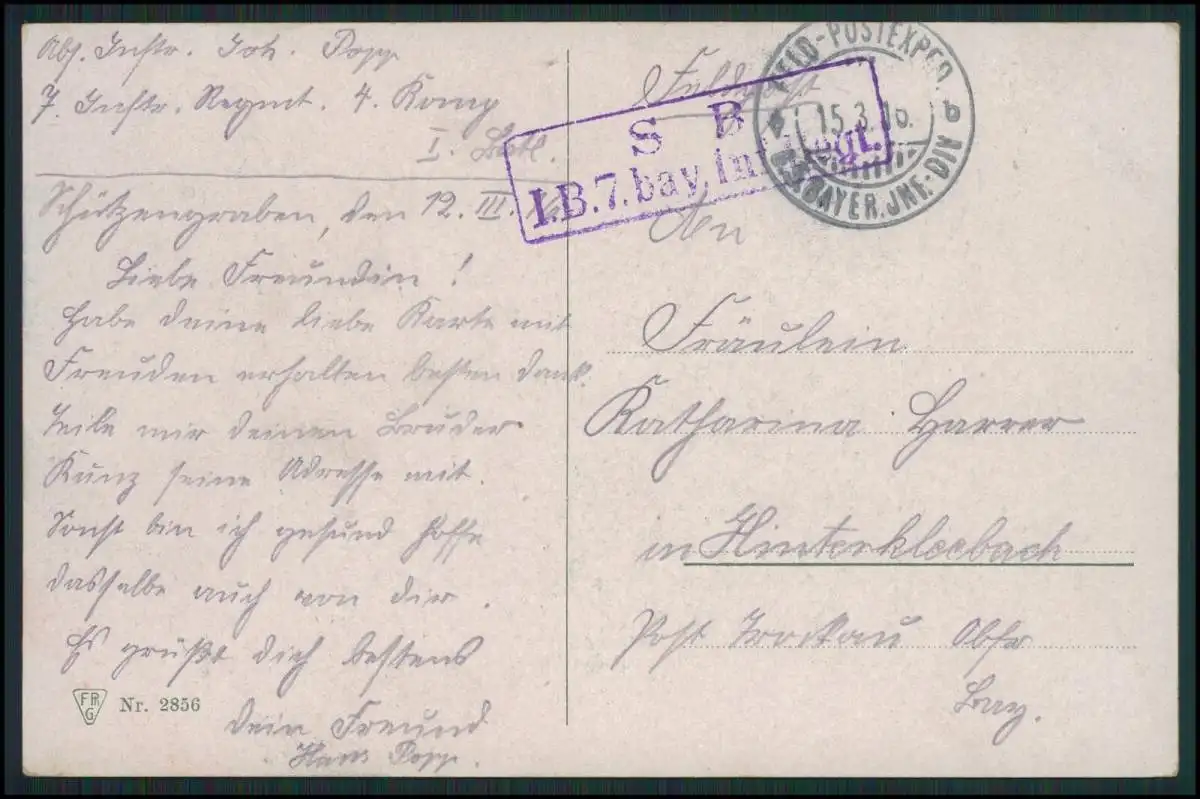 Abs. Inftr. Joh. Popp
7. Inftr. Regmt. 4. Komp
I. Batl.
Schützengraben, den 12. III. 16
Liebe Freundin!
Habe deine liebe Karte mit
Freuden erhalten besten Dank.
Teile mir deinen Bruder
Kunz seine Adresse mit.
Sonst bin ich gesund hoffe
dasselbe auch von dir.
Es grüßt dich bestens
dein Freund
Hans Popp.
FPG
Nr. 2856
Feldpost
S B
I.B.7.bay.Inf.Regt.
FELD-POSTEXPED.
15.3.16.
b
BAYER.JNF.-DIV
An
Fräulein
Katharina Harrer
in Hinterkleebach
Post Trockau Obfr
Bay.